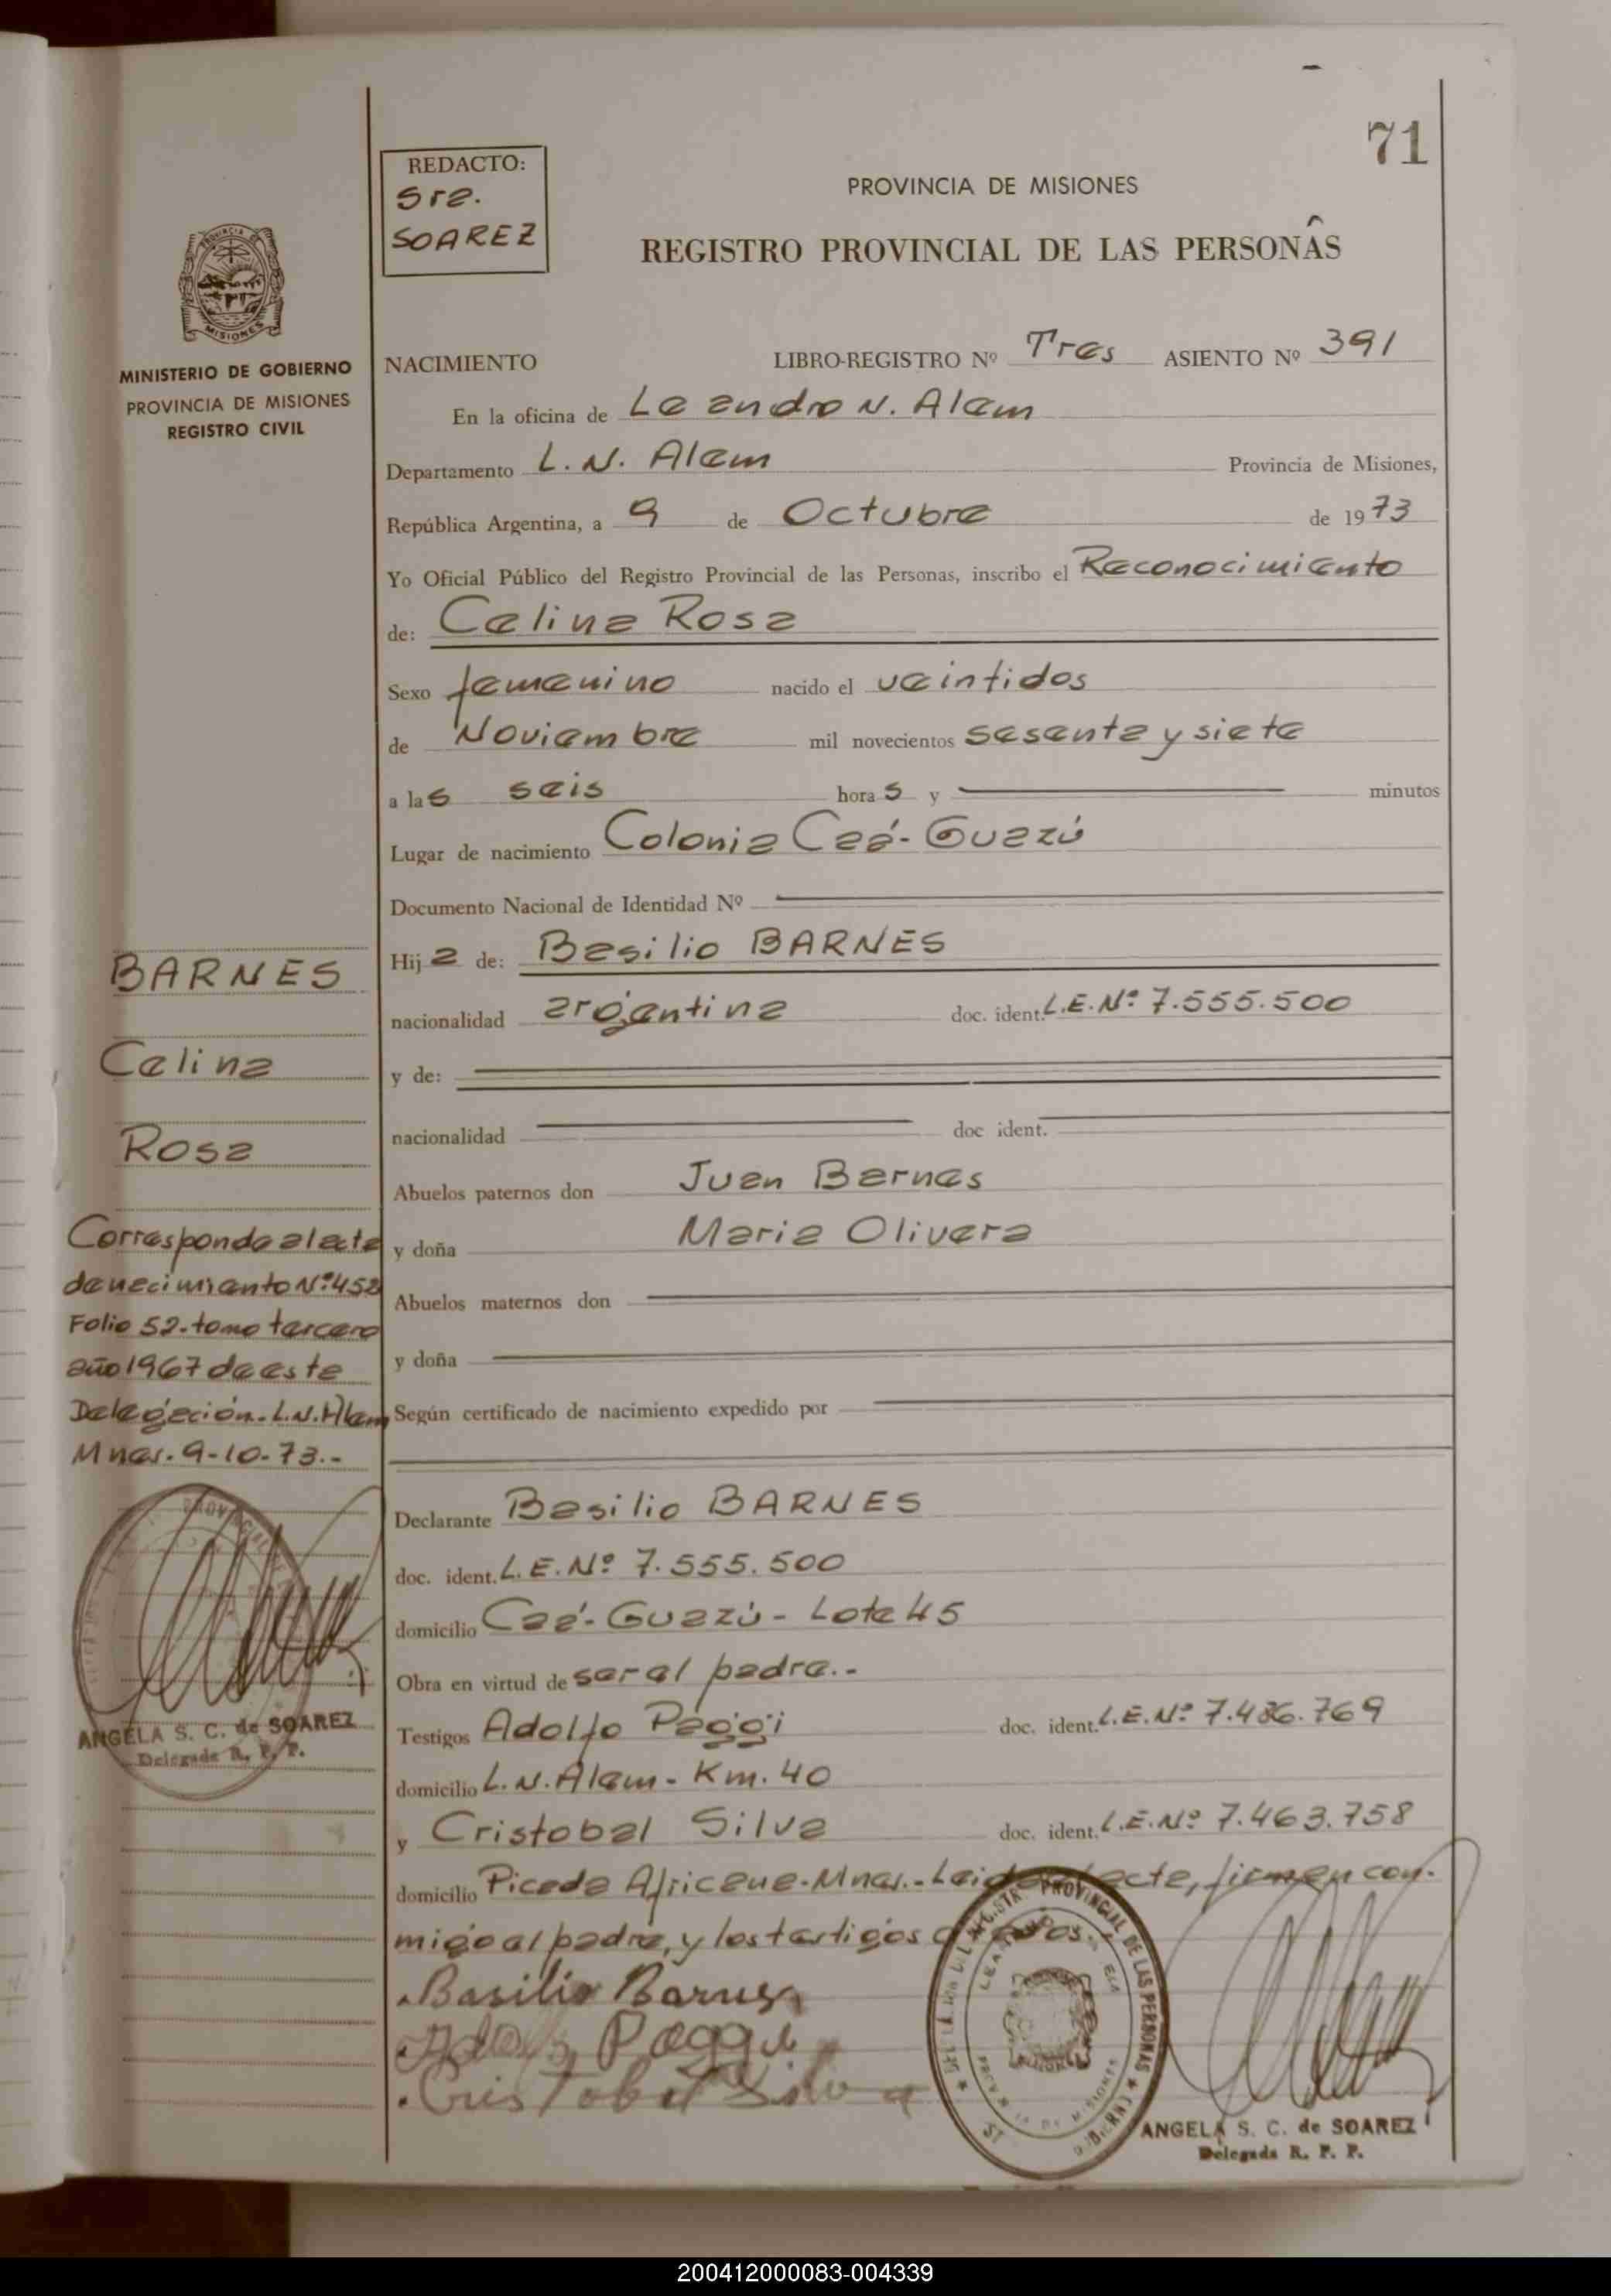 71
REDACTO:
Sra.
SOAREZ
PROVINCIA DE MISIONES
REGISTRO PROVINCIAL DE LAS PERSONAS
MISIONES
MINISTERIO DE GOBIERNO
PROVINCIA DE MISIONES
REGISTRO CIVIL
NACIMIENTO LIBRO-REGISTRO Nº Tres ASIENTO Nº 391
En la oficina de Leandro N. Alem
Departamento L. N. Alem Provincia de Misiones,
República Argentina, a 9 de Octubre de 1973
Yo Oficial Público del Registro Provincial de las Personas, inscribo el Reconocimiento
de: Celina Rosa
Sexo femenino nacido el veintidos
de Noviembre mil novecientos sesenta y siete
a las seis horas y minutos
Lugar de nacimiento Colonia Caá-Guazú
Documento Nacional de Identidad Nº
Hija de: Basilio BARNES
nacionalidad argentina doc. ident. L.E.Nº 7.555.500
y de:
nacionalidad doc ident.
Abuelos paternos don Juan Barnes
y doña Maria Olivera
Abuelos maternos don
y doña
Según certificado de nacimiento expedido por
Declarante Basilio BARNES
doc. ident. L.E.Nº 7.555.500
domicilio Caá-Guazú - Lote 45
Obra en virtud de ser el padre.-
Testigos Adolfo Paggi doc. ident. L.E.Nº 7.486.769
domicilio L.N.Alem - Km. 40
y Cristobal Silva doc. ident. L.E.Nº 7.463.758
domicilio Picada Africana-Mnes.-Leida acta, firman con-
migo el padre, y los testigos
Basilio Barnes
Adolfo Paggi
Cristobal Silva
ANGELA S. C. de SOAREZ
Delegada R. P. P.
BARNES
Celina
Rosa
Corresponde al acta
de nacimiento Nº 452
Folio 52-tomo tercero
año 1967 de esta
Delegación-L.N.Alem
Mnes. 9-10-73.-
ANGELA S. C. de SOAREZ
Delegada R. P. P.
200412000083-004339